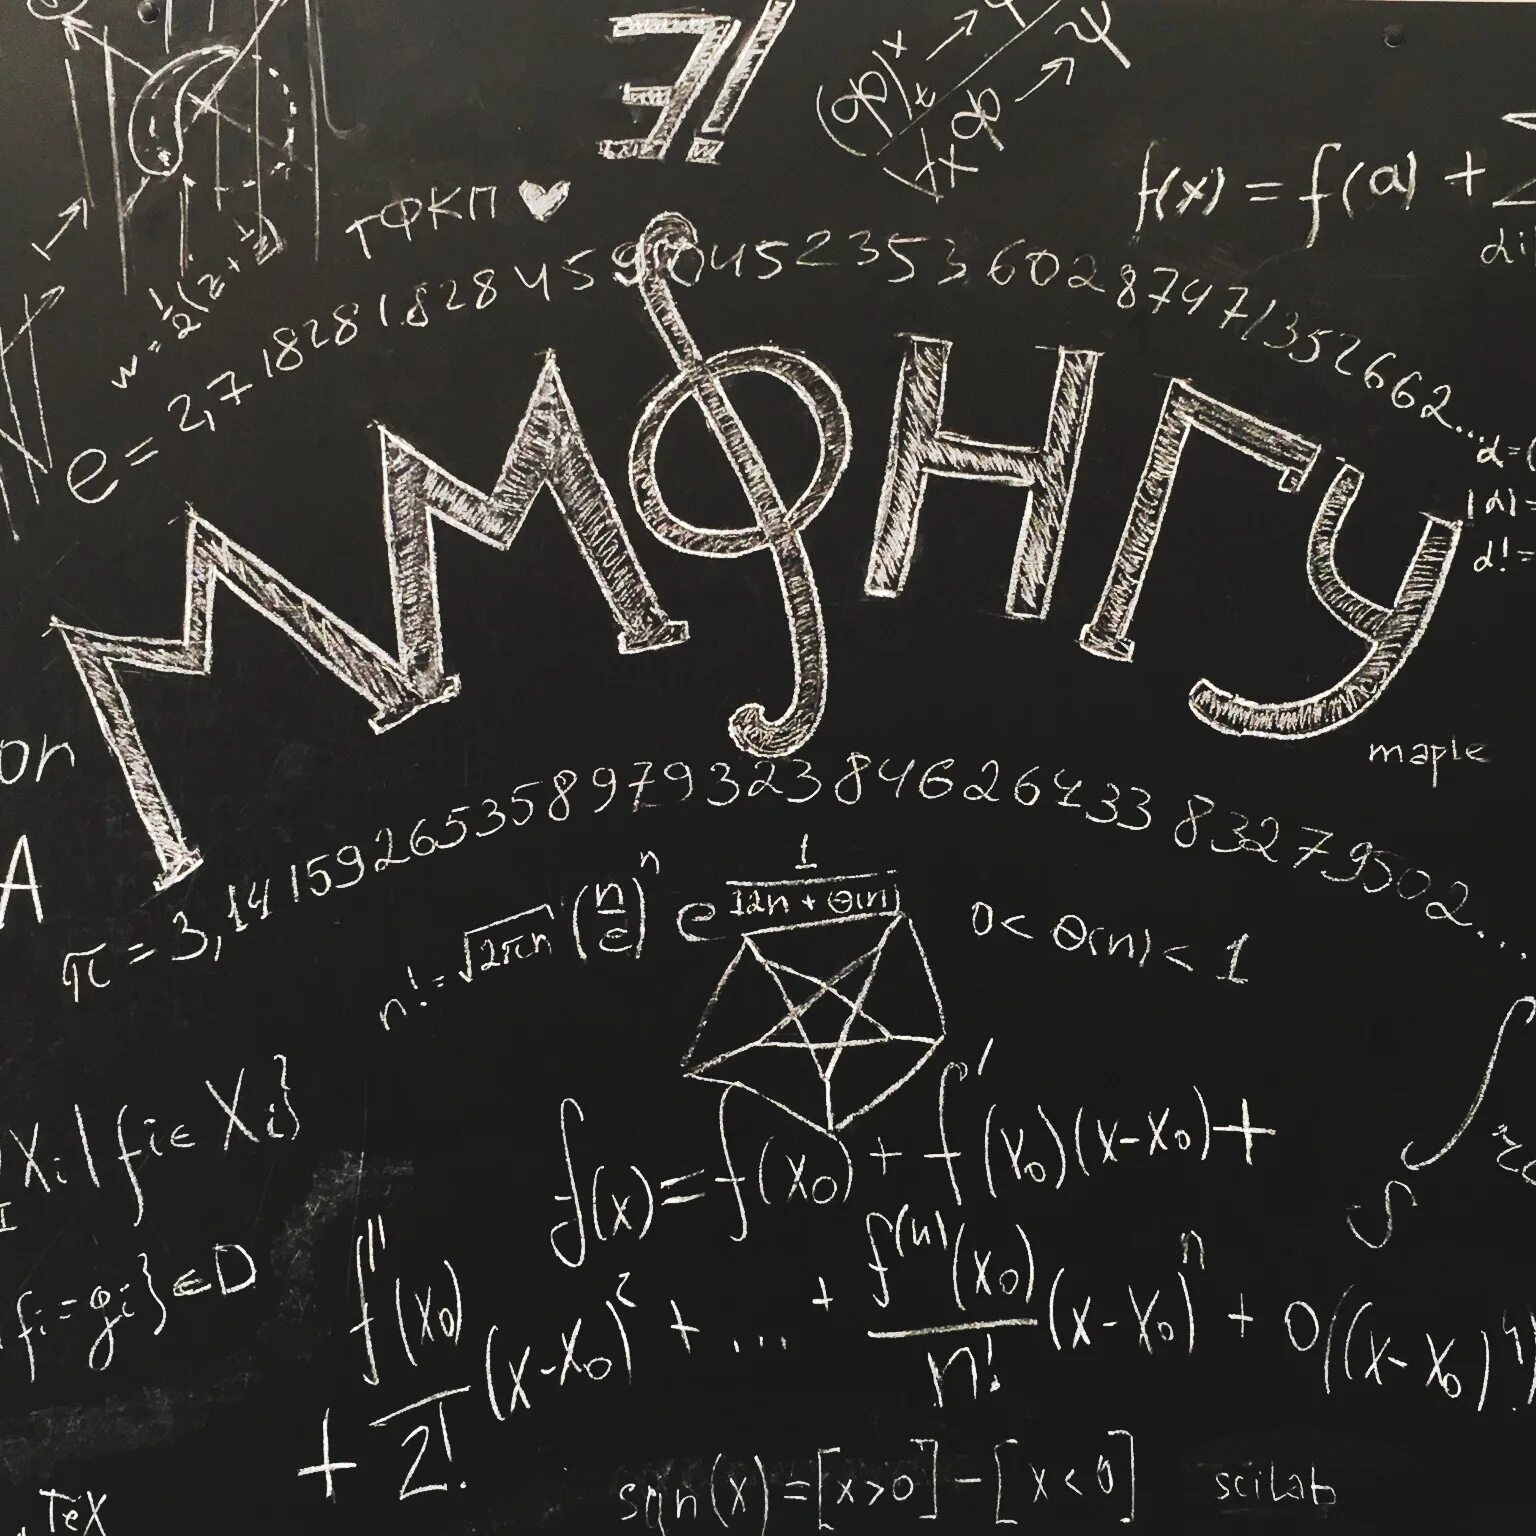 ∃!
(φ)ˣ → φ
ТФКП ♥
f(x) = f(a) +
w = 1/2 (z + 1/z)
e = 2,718281828459045235360287471352662...
ММФНГУ
on
maple
A
π = 3,141592653589793238462643383279502...
n! = √2πn (n/e)ⁿ e^(1/(12n + Θ(n)))
0 < Θ(n) < 1
Xi | fi ∈ Xi}
f(x) = f(x₀) + f'(x₀)(x-x₀) +
fi = gi} ∈ D
+ f''(x₀)/2! (x-x₀)² + ... + f⁽ⁿ⁾(x₀)/n! (x-x₀)ⁿ + o((x-x₀)ⁿ)
sgn(x) = [x>0] - [x<0]
scilab
TeX